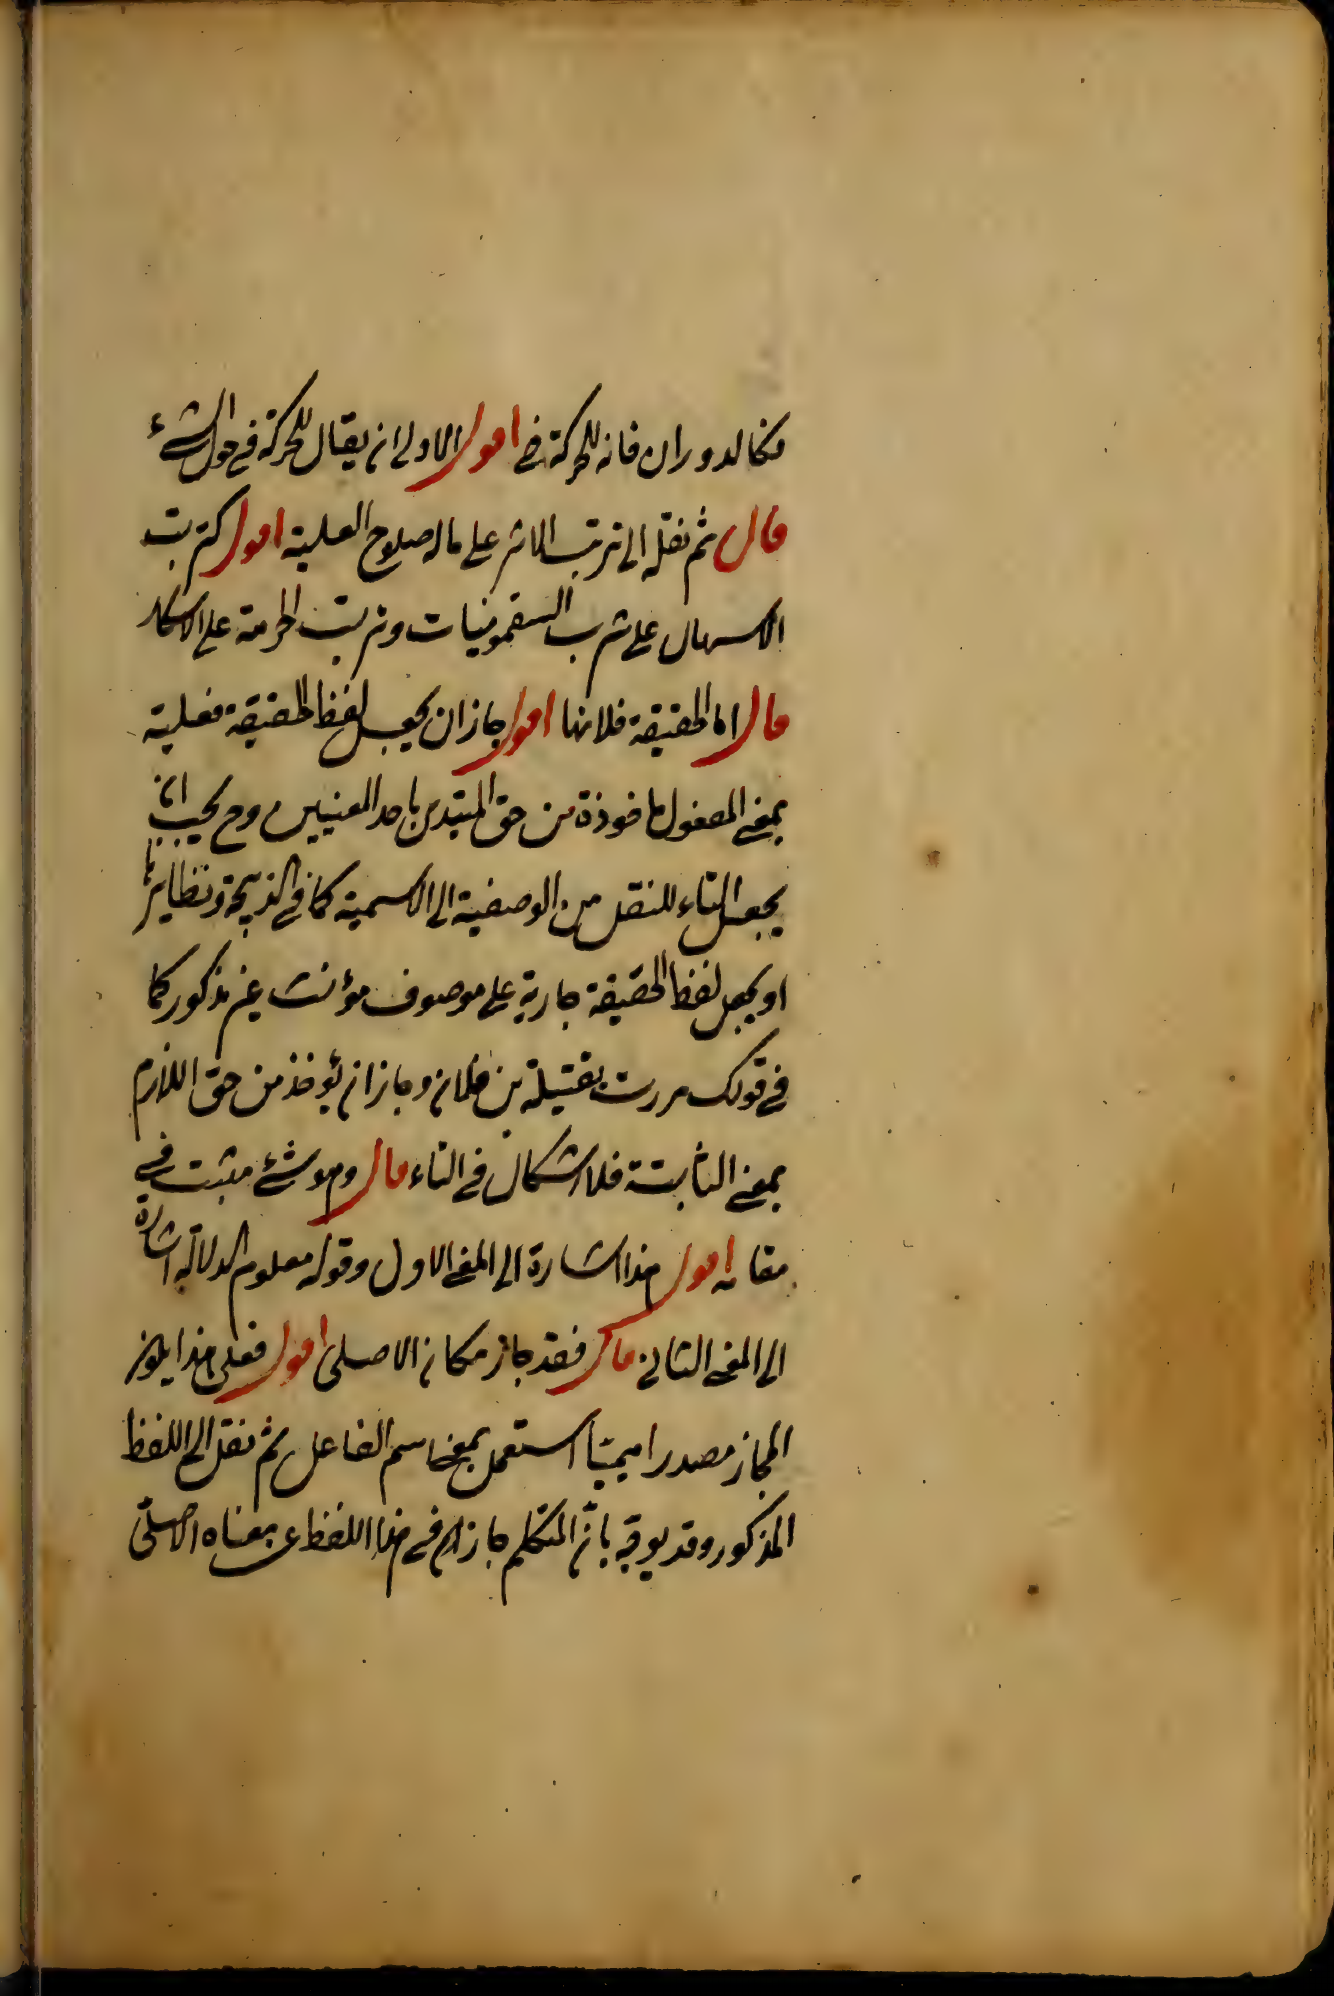 فكالدوران فانه للحركة في اقول الاولى ان يقال للحركة في حول الشئ
قال ثم نقل الى ترتب الاثر على ماله صلوح العلية اقول كترتب
الاسهال على شرب السقمونيات وترتب الحرمة على الاسكار
قال اما الحقيقة فلانها اقول جاز ان يجعل لفظ الحقيقة فعلية
بمعنى المفعول ماخوذة من حق المتعدى باحد المعنيين وح يجب ان
يجعل التاء للنقل من الوصفية الى الاسمية كما في الذبيحة ونظايرها
او يجعل لفظ الحقيقة جارية على موصوف مؤنث غير مذكور كما
في قولك مررت بقتيلة بنى فلان وجاز ان يؤخذ من حق اللازم
بمعنى الثابتة فلا اشكال في التاء قال وهو شئ مثبت في
مقامه اقول هذا اشارة الى المعنى الاول وقوله معلوم الدلالة اشارة
الى المعنى الثانى قال فقد جاز مكانه الاصلى اقول فعلى هذا يكون
المجاز مصدرا ميميّا استعمل بمعنى اسم الفاعل ثم نقل الى اللفظ
المذكور وقد يوجّه بانّ المتكلم جاز في هذا اللفظ عن معناه الاصلىّ